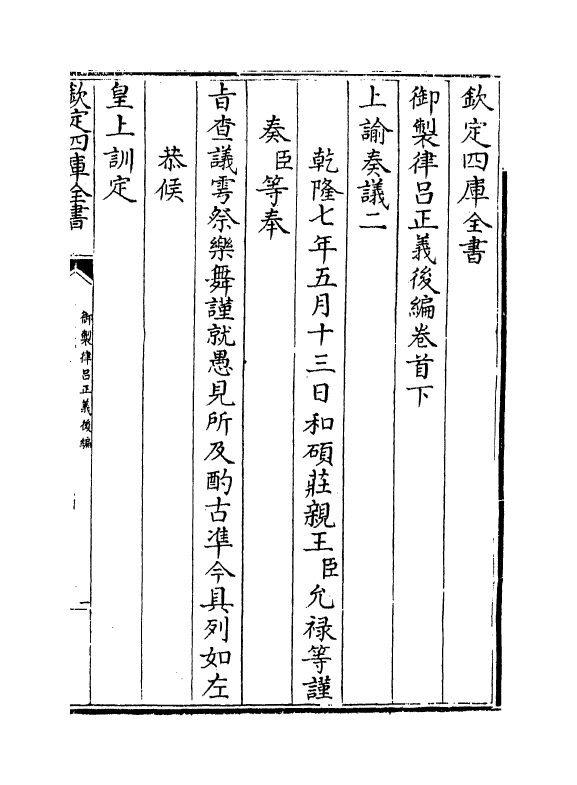 欽定四庫全書
御製律吕正義後編卷首下
上諭奏議二
乾隆七年五月十三日和碩莊親王臣允祿等謹
奏臣等奉
旨查議雩祭樂舞謹就愚見所及酌古準今具列如左
恭候
皇上訓定
欽定四庫全書
御製律吕正義後編
一